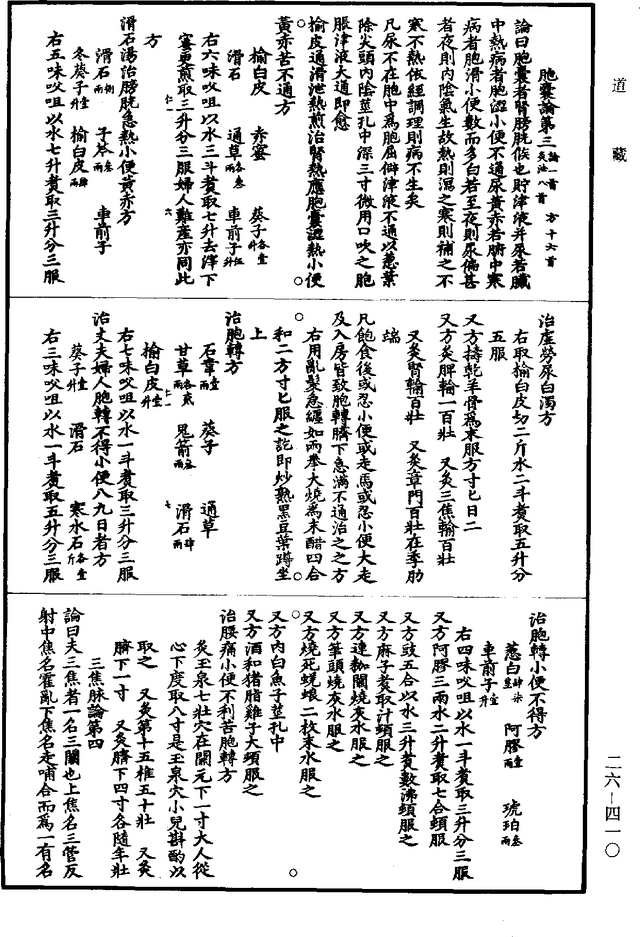 道藏
胞囊論第三 論一首 方十六首 灸法八首
論曰胞囊者腎膀胱候也貯津液并尿若臟
中熱病者胞澁小便不通尿黃赤若腑中寒
病者胞滑小便數而多白若至夜則尿偏甚
者夜則內陰氣生故熱則瀉之寒則補之不
寒不熱依經調理則病不生矣
凡尿不在胞中爲胞屈僻津液不通以蔥葉
除尖頭內陰莖孔中深三寸微用口吹之胞
脹津液大通即愈
榆皮通滑泄熱煎治腎熱應胞囊澁熱小便
黃赤苦不通方
榆白皮 赤蜜 葵子各壹升
滑石 通草各叁兩 車前子伍升
右六味㕮咀以水三斗煑取七升去滓下
蜜更煎取三升分三服婦人難產亦同此
方
滑石湯治膀胱急熱小便黃赤方
滑石捌兩 子芩叁兩 車前子
冬葵子各壹升 榆白皮肆兩
右五味㕮咀以水七升煑取三升分三服
治虛勞尿白濁方
右取榆白皮切二斤水二斗煑取五升分
五服
又方擣乾羊骨爲末服方寸匕日二
又方灸脾輸一百壯 又灸三焦輸百壯
又灸腎輸百壯 又灸章門百壯在季肋
端
凡飽食後或忍小便或走馬或忍小便大走
及入房皆致胞轉臍下急滿不通治之之方
右用亂髮急纏如兩拳大燒爲末醋四合
和二方寸匕服之訖即炒熟黑豆葉蹲坐
上
治胞轉方
石韋壹兩 葵子 通草
甘草各貳兩 鬼箭叁兩 滑石肆兩
榆白皮壹升
右七味㕮咀以水一斗煑取三升分三服
治丈夫婦人胞轉不得小便八九日者方
葵子壹升 滑石 寒水石各壹斤
右三味㕮咀以水一斗煑取五升分三服
治胞轉小便不得方
蔥白肆柒莖 阿膠壹兩 琥珀叁兩
車前子壹升
右四味㕮咀以水一斗煑取三升分三服
又方阿膠三兩水二升煑取七合頓服
又方豉五合以水三升煑數沸頓服之
又方麻子煑取汁頓服之
又方連枷關燒灰水服之
又方筆頭燒灰水服之
又方燒死蜣蜋二枚末水服之
又方內白魚子莖孔中
又方酒和猪脂雞子大頓服之
治腰痛小便不利苦胞轉方
灸玉泉七壯穴在關元下一寸大人從
心下度取八寸是玉泉穴小兒斟酌以
取之 又灸第十五椎五十壯 又灸
臍下一寸 又灸臍下四寸各隨年壯
三焦脉論第四
論曰夫三焦者一名三關也上焦名三管反
射中焦名霍亂下焦名走哺合而爲一有名
二六-四一〇